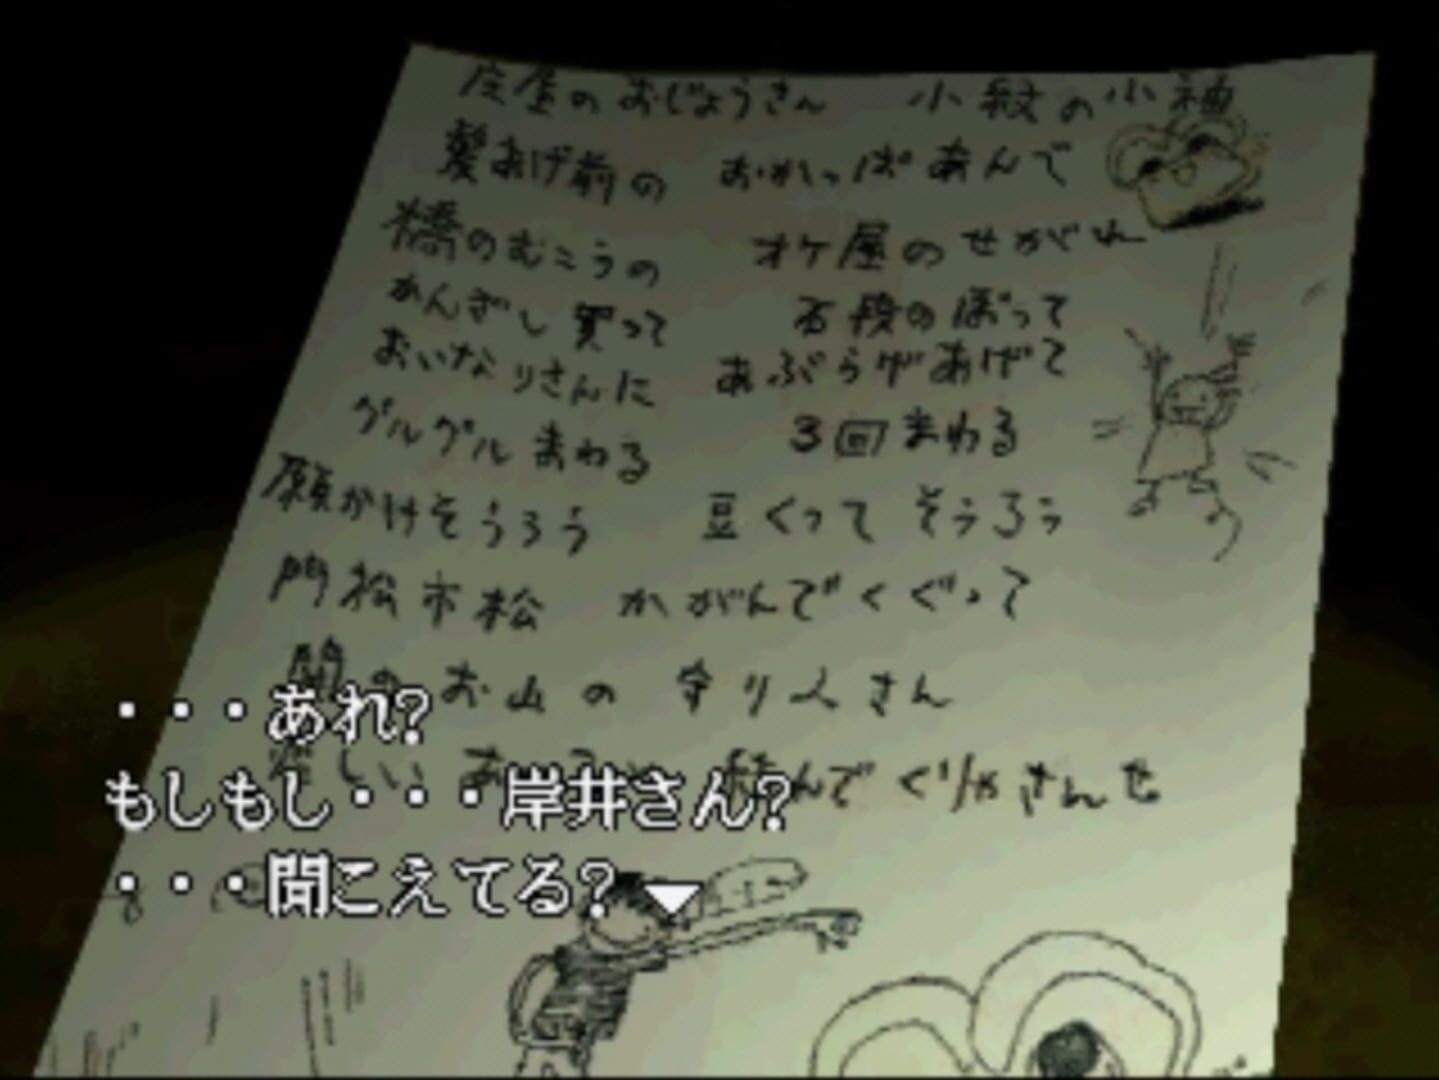 庄屋のおじょうさん 小紋の小袖
髪あげ前の おかっぱあんで
橋のむこうの オケ屋のせがれ
かんざし買って 石段のぼって
おいなりさんに あぶらげあげて
グルグルまわる 3回まわる
願かけそうろう 豆くってそうろう
門松市松 かがんでくぐって
お山の 守り人さん
しい 結んでくりゃさんせ
・・・あれ?
もしもし・・・岸井さん?
・・・聞こえてる?